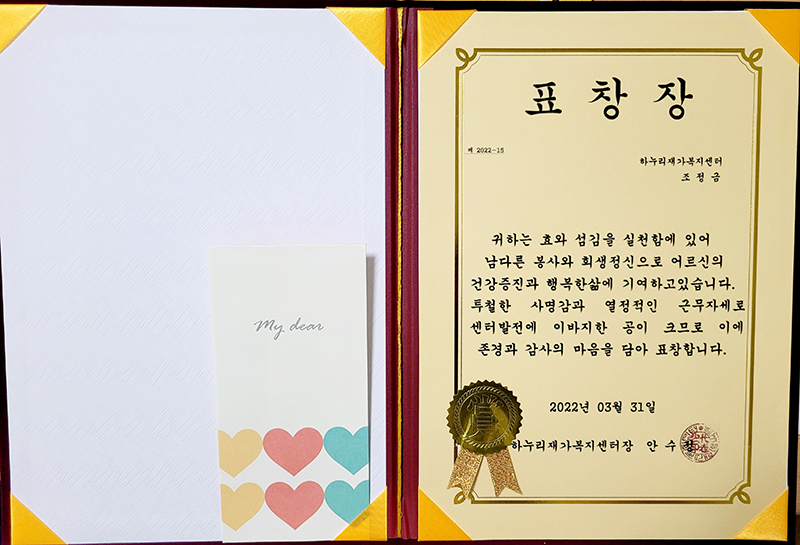 My dear
표 창 장
제 2022-15
하누리재가복지센터
조 정 금
귀하는 효와 섬김을 실천함에 있어
남다른 봉사와 희생정신으로 어르신의
건강증진과 행복한삶에 기여하고있습니다.
투철한 사명감과 열정적인 근무자세로
센터발전에 이바지한 공이 크므로 이에
존경과 감사의 마음을 담아 표창합니다.
2022년 03월 31일
하누리재가복지센터장 안 수